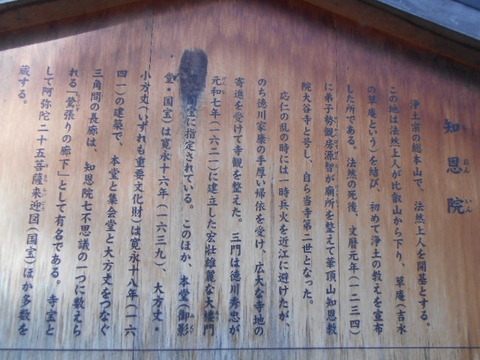 知恩院
おん いん
浄土宗の総本山で、法然上人を開基とする。
この地は法然上人が比叡山から下り、草庵(吉水
の草庵という)を結び、初めて浄土の教えを宣布
した所である。法然の死後、文暦元年(一二三四)
に弟子勢観房源智が廟所を整えて華頂山知恩教
院大谷寺と号し、自ら当寺第二世となった。
応仁の乱の時には一時兵火を近江に避けたが、
のち徳川家康の手厚い帰依を受け、広大な寺地の
寄進を受けて寺観を整えた。三門は徳川秀忠が
元和七年(一六二一)に建立した宏壮雄麗な大楼門
国宝に指定されている。このほか、本堂(御影
堂・国宝)は寛永十六年(一六三九)、大方丈・
小方丈(いずれも重要文化財)は寛永十八年(一六
四一)の建築で、本堂と集会堂と大方丈をつなぐ
三角間の長廊は、知恩院七不思議の一つに数えら
れる「鶯張りの廊下」として有名である。寺宝と
して阿弥陀二十五菩薩来迎図(国宝)ほか多数を
蔵する。